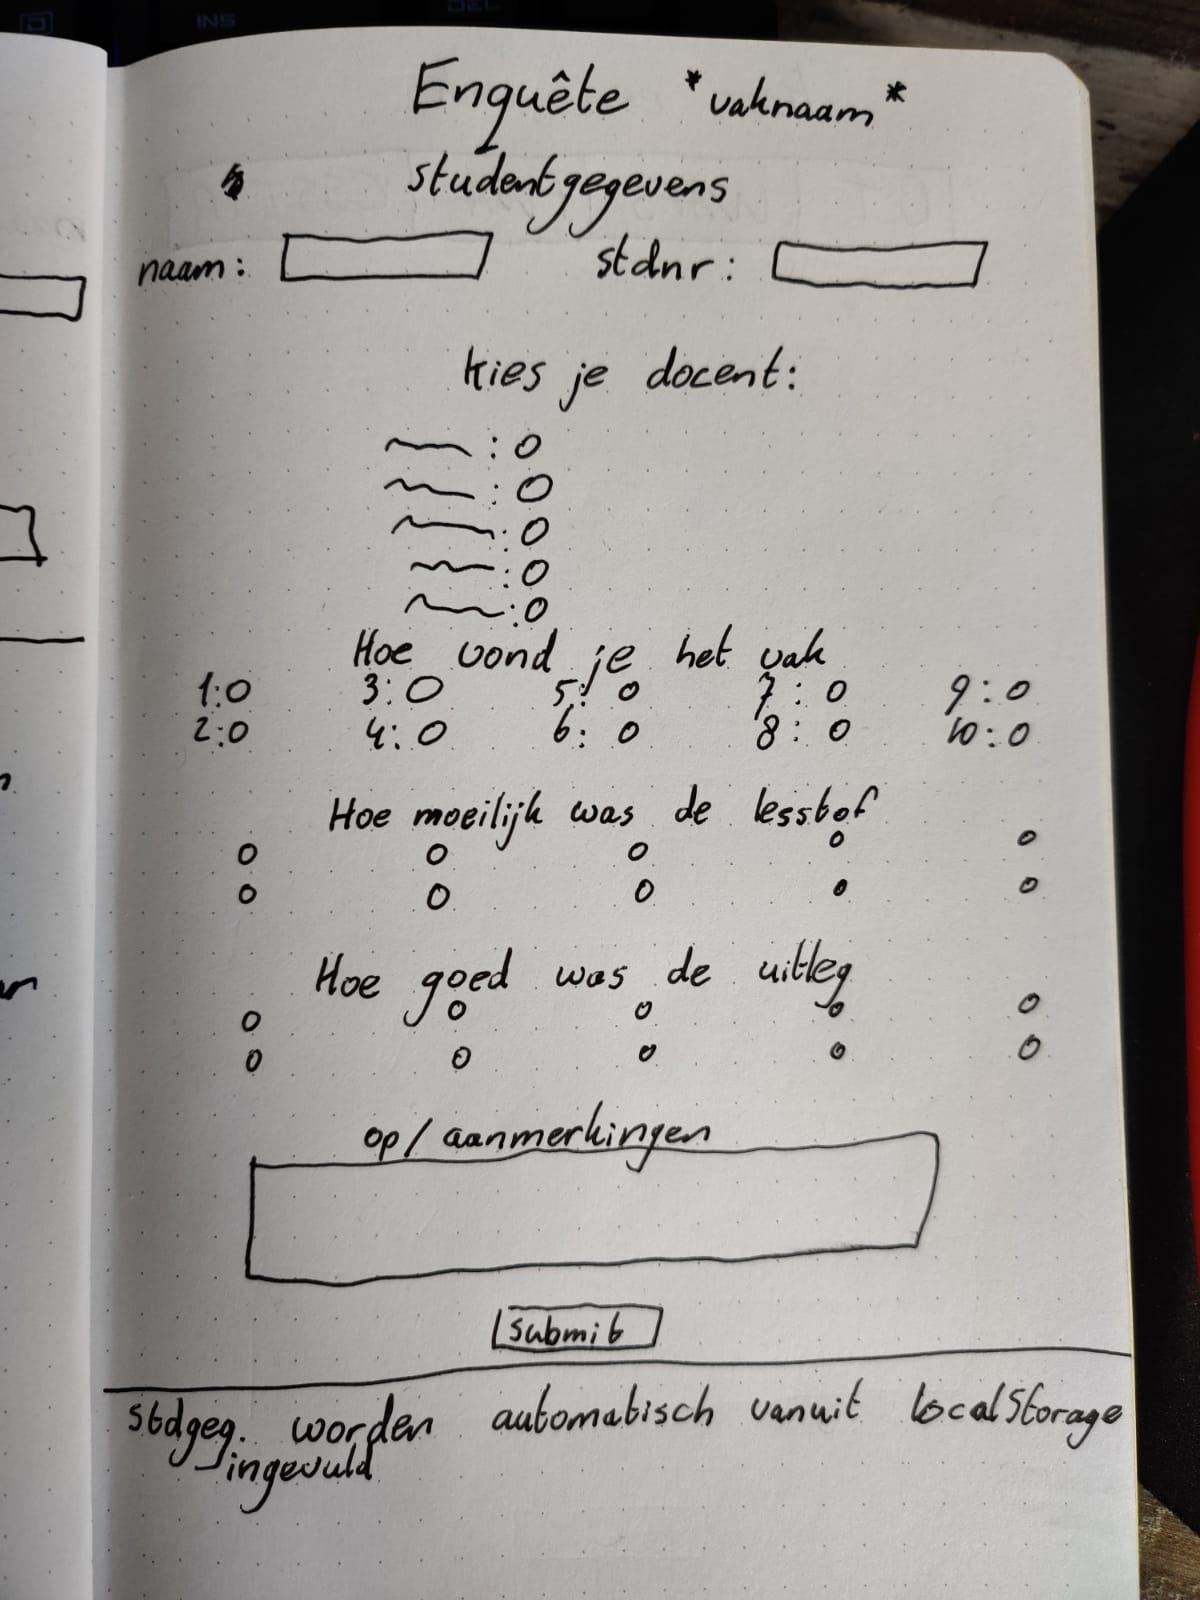 INS
DEL
Enquête *vaknaam*
studentgegevens
naam: stdnr:
kies je docent:
Hoe vond je het vak
1: 3: 5: 7: 9:
2: 4: 6: 8: 10:
Hoe moeilijk was de lesstof
Hoe goed was de uitleg
op/aanmerkingen
submit
Stdgeg. worden automatisch vanuit localStorage
ingevuld